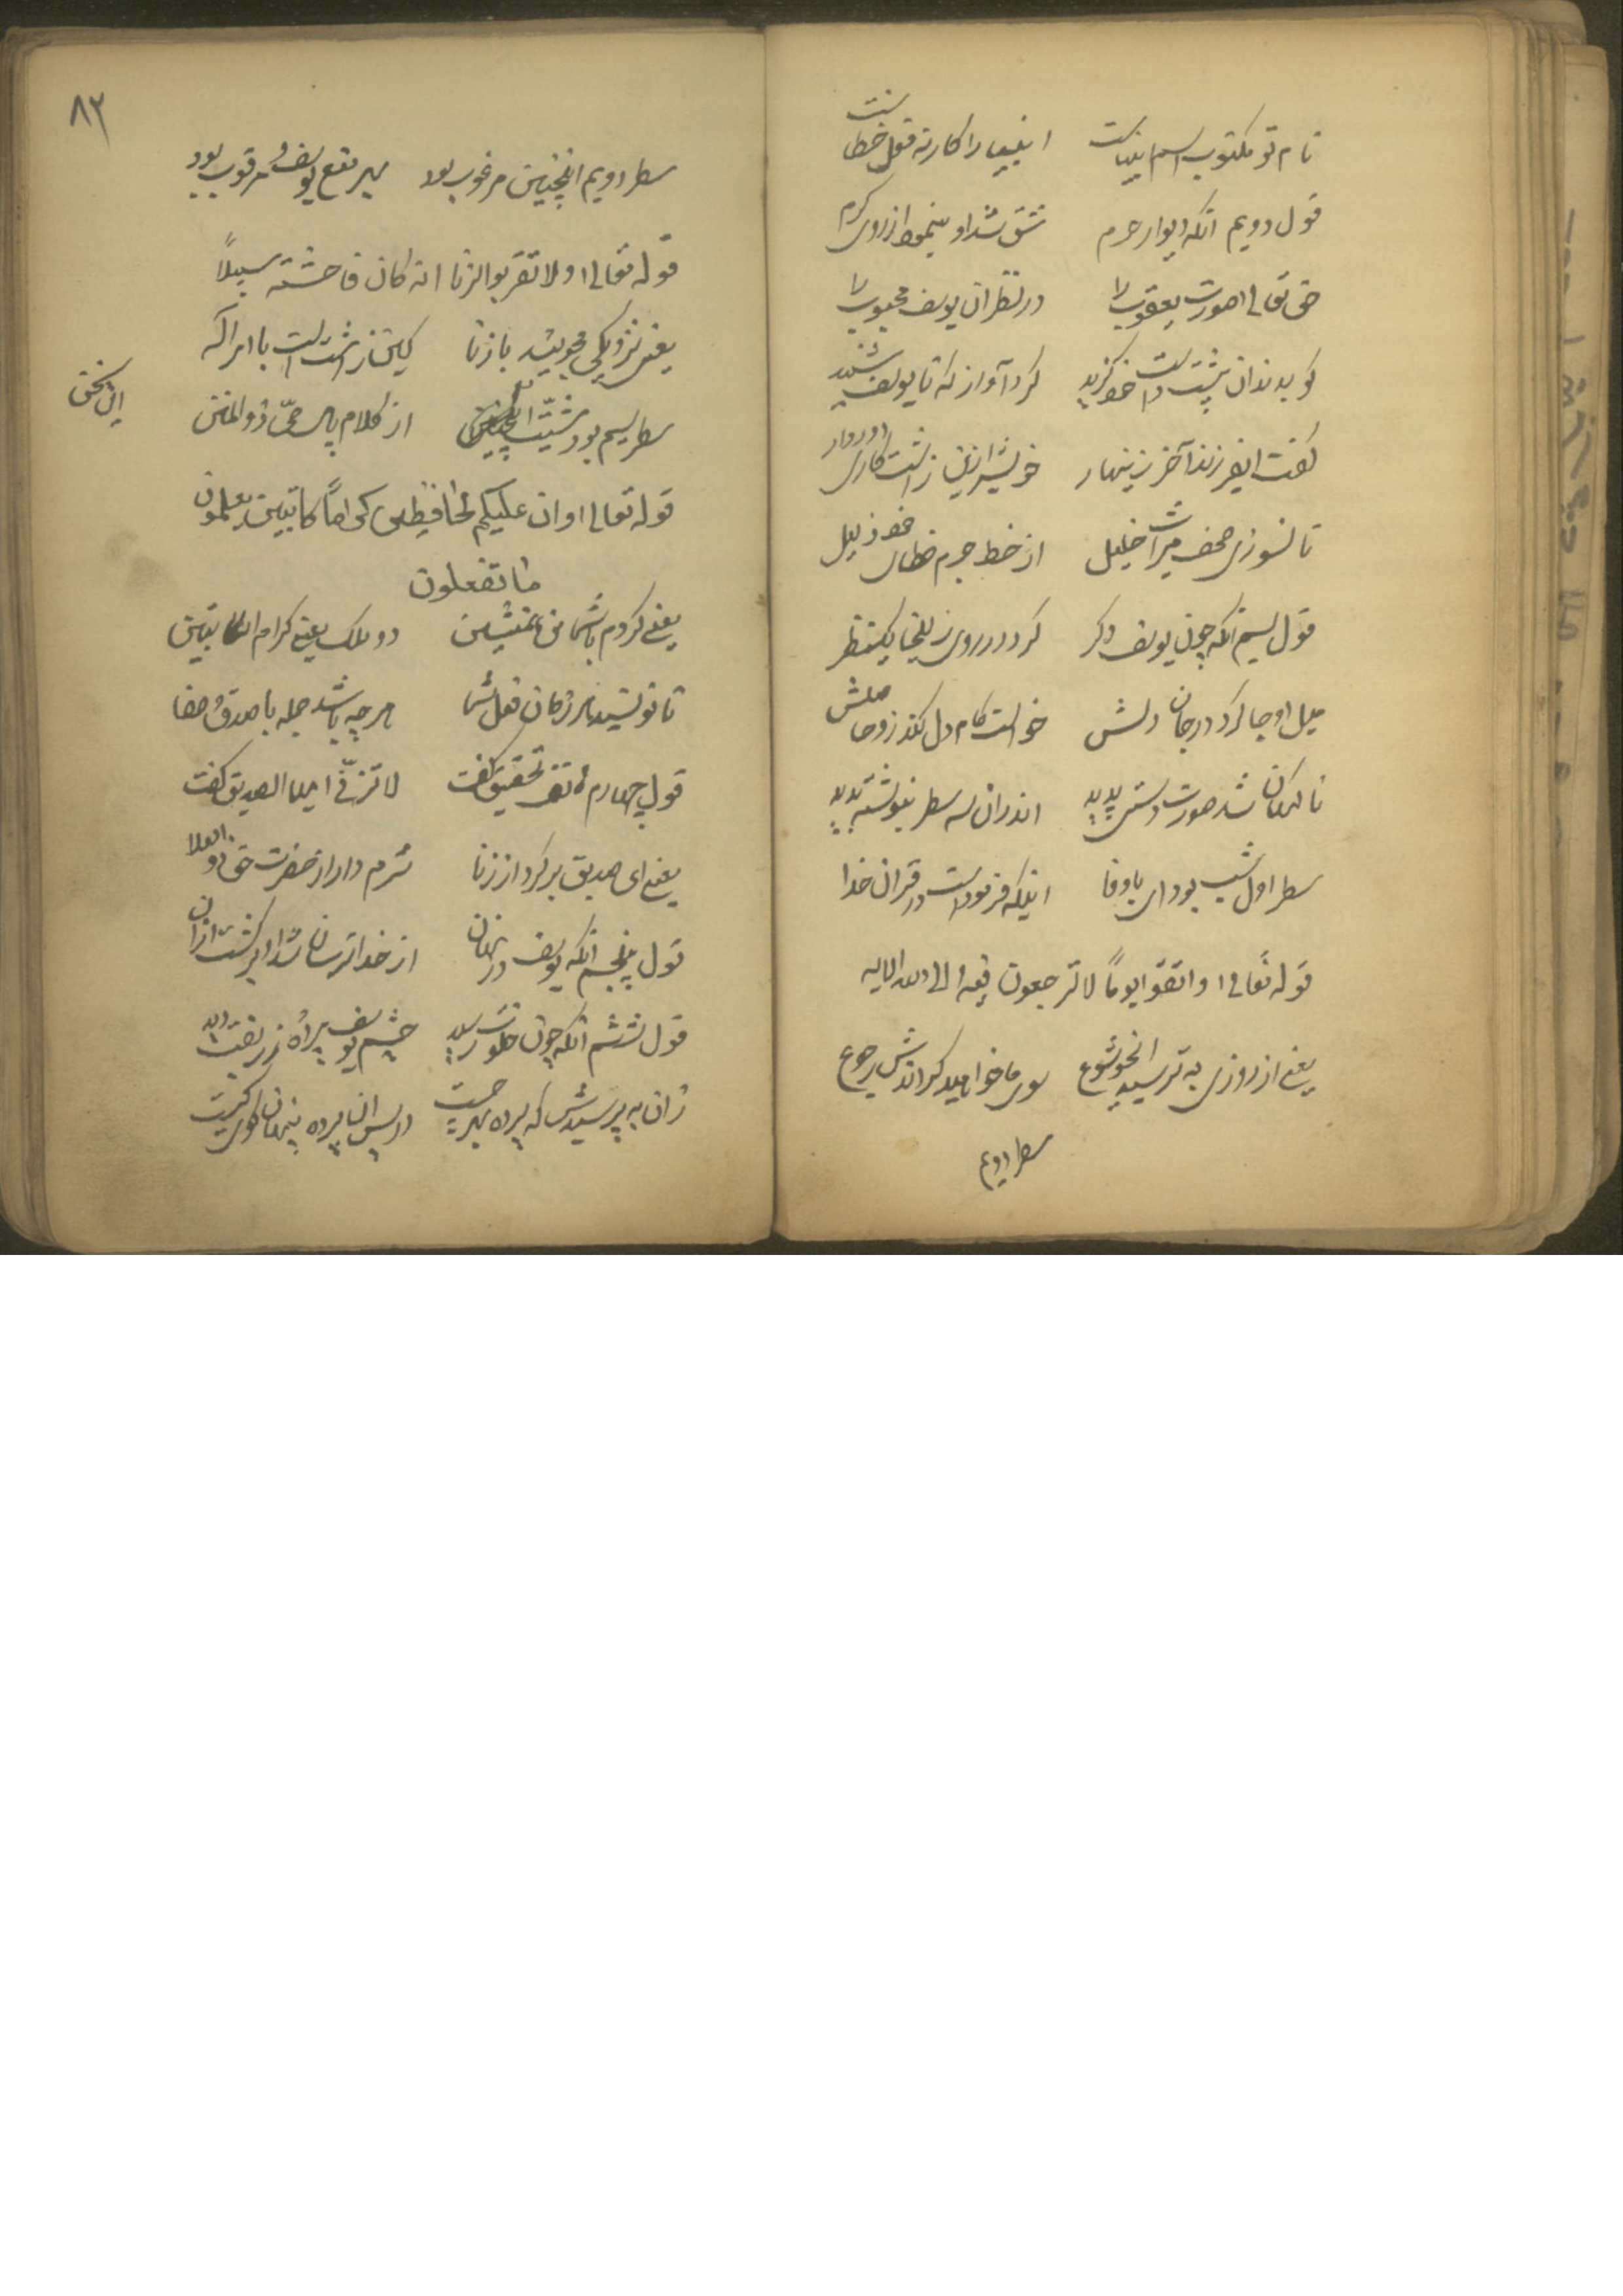 نام تو مکتوب اسم انبیاست انبیا را کار نه فعل خطاست
قول دویم انکه دیوار حرم شق شد او بنمود از روی کرم
حق تعالی صورت یعقوب را در نظر ان یوسف محبوب را
کو بدندان پشت دست خود گزید کرد آواز که تا یوسف شنید
گفت ای فرزند آخر زینهار خویش را زین زشت کاری دور دار
تا نسوزی صحف میراث خلیل از خط جرم خطای خود ذلیل
قول سیم انکه چون یوسف دکر کرد در روی زلیخا یکنظر
میل او جا کرد در جان و دلش خواست کام دل کند زو حاصلش
ناکهان شد صورت دستی پدید اندران سه سطر بنوشته بدید
سطر اول شب بود ای باوفا اینکه فرموداست در قران خدا
قوله تعالی واتقوا یوماً لا ترجعون فیه الی الله الایه
یعنی از روزی به ترسید انخوشوع سوی ما خواهید کرد اندرش رجوع
سطر دویم
۸۳
سطر دویم اینچنین مرغوب بود بهر منع یوسف مرقوب بود
قوله تعالی ولا تقربوا الزنا انه کان فاحشة سبیلاً
یعنی نزدیکی مجویید با زنا کین زشت است با ابراکه
سطر سیم بود شیت اینچنین از کلام پاک حی ذوالمنن
این سخن
قوله تعالی وان علیکم لحافظین کراماً کاتبین یعلمون
ما تفعلون
یعنی کردم با شما من همنشین دو ملک یعنی کرام الکاتبین
تا نویسید هر زمان فعل شما هرچه باشد جمله با صدق و صفا
قول چهارم هاتف تحقیق گفت لا تزنی ایها الصدیق گفت
یعنی ای صدیق بر کرد از زنا شرم دار از حضرت حق ذوالعلا
قول پنجم انکه یوسف در نهان از خدا ترسان شد و برکشت ازان
قول ششم انکه چون خلوت رسید چشم یوسف پرده زربفت دید
زان به پرسیدش که پرده بهر چیست در پس ان پرده پنهان کوی کیست